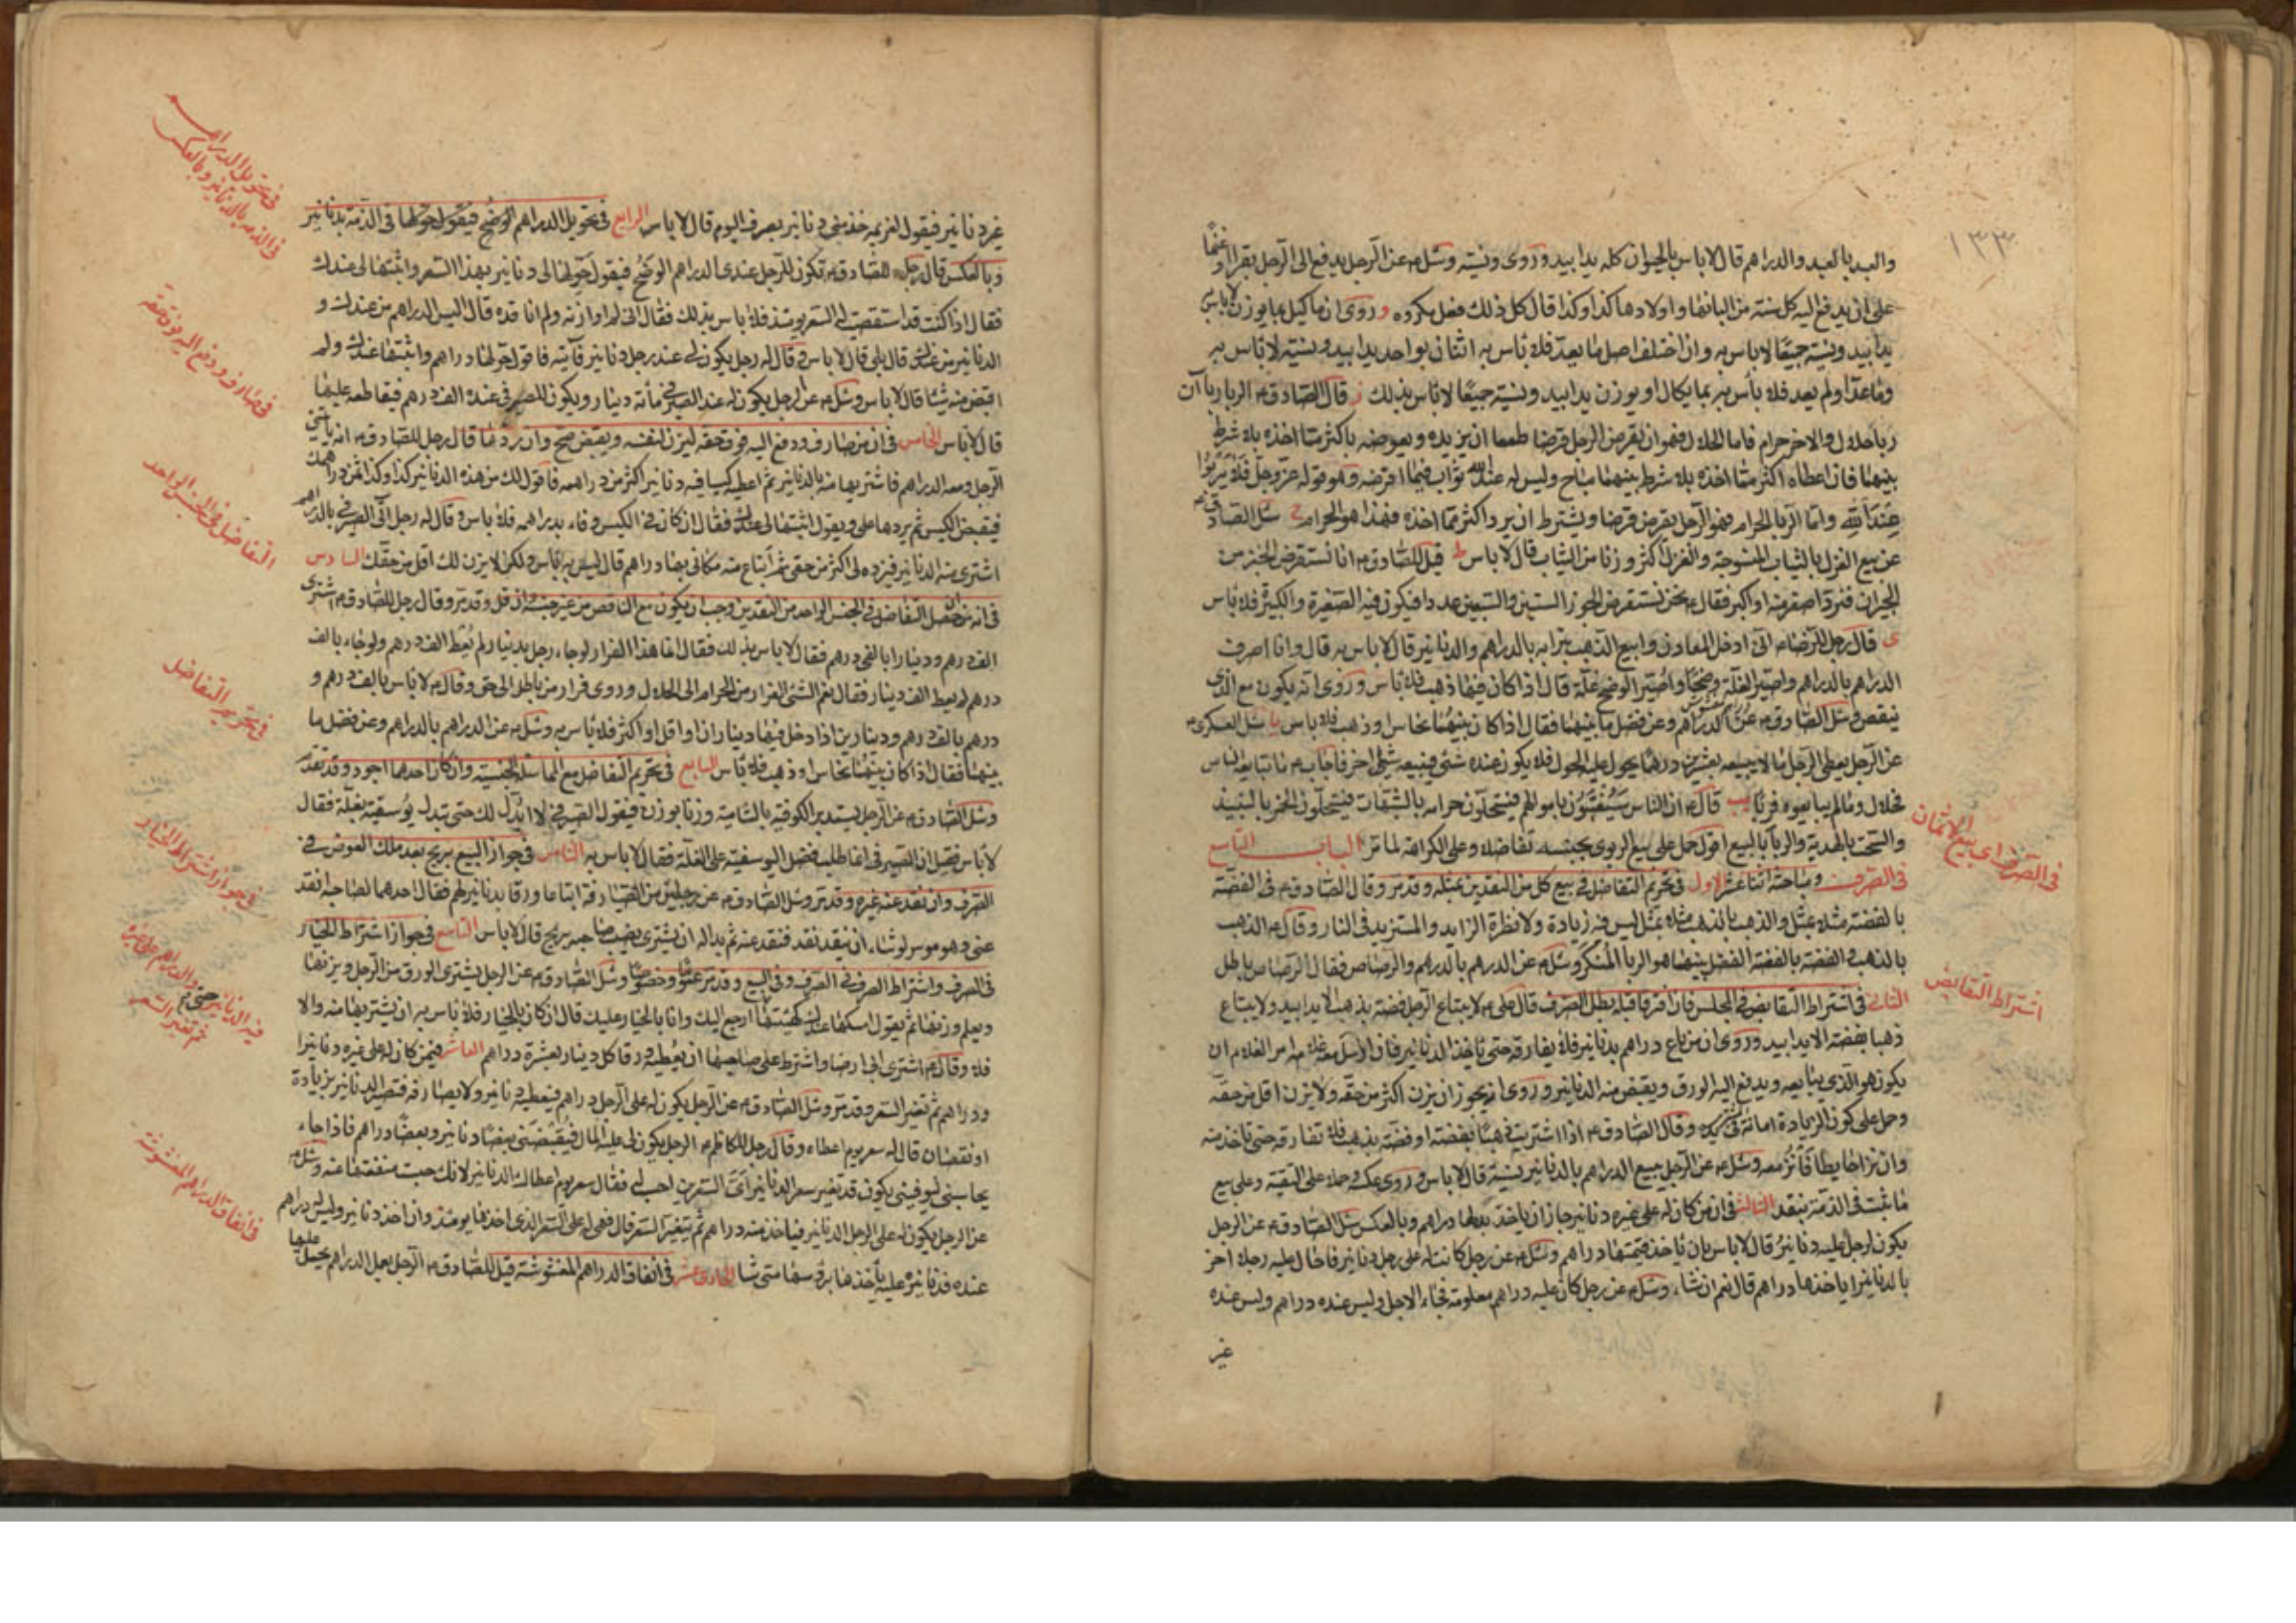 ١٣٣
والعبد بالعبد والدراهم قال لا باس بالحيوان كله يدا بيد وروى ونسية وسئل ع عن الرجل يدفع الى الرجل بقرا او غنما
على ان يدفع اليه كل سنة من البانها واولادها كذا وكذا قال كل ذلك فعل مكروه و روى ان ما كيل بما يوزن لا باس
يدا بيد ونسية جميعا لا باس به وان اختلف اصل ما يعد فلا باس به اثنان بواحد يدا بيد ونسية لا باس به
وما عد او لم يعد فلا باس به بما يكال او يوزن يدا بيد ونسية جميعا لا باس بذلك ز قال الصادق ع الربا رباآن
ربا حلال والاخر حرام فاما الحلال فهو ان يقرض الرجل قرضا طمعا ان يزيده ويعوضه باكثر مما اخذه بلا شرط
بينهما فان اعطاه اكثر مما اخذه بلا شرط بينهما مباح وليس له عند الله ثواب فيما اقرضه وهو قوله عز وجل فلا يربوا
عند الله واما الربا الحرام فهو الرجل يقرض قرضا ويشترط ان يرد اكثر مما اخذه فهذا هو الحرام ح سئل الصادق ع
عن بيع الغزل بالثياب المنسوجة والغزل اكثر وزنا من الثياب قال لا باس ط قيل للصادق ع انا نستقرض الخبز من
الجيران فنرد اصغر منه او اكبر فقال ع نحن نستقرض الجوز الستين والسبعين عددا فيكون فيه الصغيرة والكبيرة فلا باس
ى قال رجل للرضا ع انى ادخل المعادن وابيع الذهب بترابه بالدراهم والدنانير قال لا باس به قال وانا اصرف
الدراهم بالدراهم واصير الغلة وضحا واصير الوضح غلة قال اذا كان فيها ذهب فلا باس وروى انه يكون مع الذى
ينقص وسئل الصادق ع عن الدراهم وعن فضل ما بينهما فقال اذا كان بينهما نحاس او ذهب فلا باس يا سئل العسكرى ع
عن الرجل يعطى الرجل مالا يبيعه بعشرين درهما يحول عليه الحول فلا يكون عنده شئ فيبيعه شيئا اخر فاجاب ع ما تبايعه الناس
فحلال وما لم يبايعوه فربا يب قال ع ان الناس سيفتنون باموالهم فيستحلون حرامه بالشبهات فيستحلون الخمر بالنبيذ
والسحت بالهدية والربا بالبيع اقول حمل على بيع الربوى بجنسه تفاضلا وعلى الكراهة لما مر الباب التاسع
فى الصرف ومباحثه اثنا عشر الاول فى تحريم التفاضل فى بيع كل من النقدين بمثله وقد مر وقال الصادق ع فى الفضة
بالفضة مثلا بمثل والذهب بالذهب مثلا بمثل ليس فيه زيادة ولا نظرة الزايد والمستزيد فى النار وقال ع الذهب
بالذهب والفضة بالفضة الفضل بينهما هو الربا المنكر وسئل ع عن الدرهم بالدرهم والرصاص فقال الرصاص باطل
الثانى فى اشتراط التقابض فى المجلس فان افترقا قبله بطل الصرف قال على ع لا يبتاع الرجل فضة بذهب الا يدا بيد ولا يبتاع
ذهبا بفضة الا يدا بيد وروى ان من باع دراهم بدنانير فلا يفارقه حتى ياخذ الدنانير فان ارسل معه غلامه امر الغلام ان
يكون هو الذى يبايعه ويدفع اليه الورق ويقبض منه الدنانير وروى انه يجوز ان يزن اكثر من حقه ولا يزن اقل من حقه
وحمل على كون الزيادة امانة وقال الصادق ع اذا اشتريت ذهبا بفضة او فضة بذهب فلا تفارقه حتى تاخذ منه
وان نزا حايطا فانز معه وسئل ع عن الرجل يبيع الدراهم بالدنانير بنسية قال لا باس وروى عكسه وحملا على التقية وعلى بيع
ما ثبت فى الذمة بنقد الثالث فى ان من كان له على غيره دنانير جاز ان ياخذ بدلها دراهم وبالعكس سئل الصادق ع عن الرجل
يكون لرجل عليه دنانير قال لا باس بان ياخذ قيمتها دراهم وسئل ع عن رجل كانت له على رجل دنانير فاحال عليه رجلا اخر
بالدنانير اياخذها دراهم قال نعم ان شاء وسئل ع عن رجل كان عليه دراهم معلومة فجاء الاجل وليس عنده دراهم وليس عنده
غير
فى الصرف اى بيع الاثمان
اشتراط التقابض
غير دنانير فيقول لغريمه خذ منى دنانير بصرف اليوم قال لا باس الرابع فى تحويل الدراهم الوضح فيقول حولها فى الذمة بدنانير
وبالعكس قال رجل للصادق ع تكون للرجل عندى الدراهم الوضح فيقول حولها لى دنانير بهذا السعر واثبتها لى عندك
فقال اذا كنت قد استقصيت له السعر يومئذ فلا باس بذلك فقال انى لم اوازنه ولم اناقده قال اليس الدراهم من عندك و
الدنانير من عندك قال بلى قال لا باس وقال له رجل يكون لى عند رجل دنانير فآتيه فاقول حولها دراهم واثبتها عندك ولم
اقبض منه شيئا قال لا باس وسئل ع عن الرجل يكون له عند الصيرفى مائة دينار ويكون للصيرفى عنده الف درهم فيقاطعه عليها
قال لا باس الخامس فى ان من صارف ودفع اليه فوق حقه ليزن لنفسه ويقبض صح وان رد ما قال رجل للصادق ع انه ياتينى
الرجل ومعه الدراهم فاشتريها منه بالدنانير ثم اعطيه كيسا فيه دنانير اكثر من دراهمه فاقول لك من هذه الدنانير كذا وكذا ثمن دراهمك
فيقبض الكيس ثم يردها على ويقول اثبتها لى عندك فقال ان كان فى الكيس وفاء بدراهمه فلا باس وقال له رجل آتى الصيرفى بالدراهم
اشترى منه الدنانير فيزنه لى اكثر من حقى ثم ابتاع منه مكانى بها دراهم قال ليس به باس ولكن لا يزن لك اقل من حقك السادس
فى انه من حصل التفاضل فى الجنس الواحد من النقدين وجب ان يكون مع الناقص من غير جنسه وان قل وقد مر وقال رجل للصادق ع اشترى
الف درهم ودينارا بالفى درهم فقال لا باس بذلك فقال انما هذا الفرار لو جاء رجل بدينار لم يعط الف درهم ولو جاء بالف
درهم لم يعط الف دينار فقال نعم الشئ الفرار من الحرام الى الحلال وروى فرار من باطل الى حق وقال ع لا باس بالف درهم و
درهم بالف درهم ودينارين اذا دخل فيها ديناران او اقل او اكثر فلا باس به وسئل ع عن الدراهم بالدراهم وعن فضل ما
بينهما فقال اذا كان بينهما نحاس او ذهب فلا باس السابع فى تحريم التفاضل مع الماثلة الجنسية وان كان احدهما اجود وقد تقدم
وسئل الصادق ع عن الرجل يستبدل الكوفية بالشامية وزنا بوزن فيقول الصيرفى لا ابدل لك حتى تبدل يوسفية بغلة فقال
لا باس فقيل ان الصيرفى انما طلب فضل اليوسفية على الغلة فقال لا باس به الثامن فى جواز البيع بربح بعد ملك العوض فى
الصرف وان نقد عنه غيره وقد مر وسئل الصادق ع عن رجلين من الصيارفة ابتاعا ورقا بدنانير فقال احدهما لصاحبه انقد
عنى وهو موسر لو شاء ان ينقد نقد فنقد عنه ثم بدا له ان يشترى نصيب صاحبه بربح قال لا باس التاسع فى جواز اشتراط الخيار
فى الصرف واشتراط الصرف فى الصرف وفى البيع وقد مر عموما وخصوصا وسئل الصادق ع عن الرجل يشترى الورق من الرجل ويزنها
ويعلم وزنها ثم يقول امسكها عندك كهيئتها ارجع اليك وانا بالخيار عليك قال ان كان بالخيار فلا باس به ان يشتريها منه والا
فلا وقال ع اشترى ابى ارضا واشترط على صاحبها ان يعطيه ورقا كل دينار بعشرة دراهم العاشر فيمن كان له على غيره دنانير
ودراهم ثم تغير السعر وقد مر وسئل الصادق ع عن الرجل يكون له على الرجل دراهم فيعطيه دنانير ولا يصارفه فتصير الدنانير بزيادة
او نقصان قال له سعر يوم اعطاه وقال رجل للكاظم ع الرجل يكون لى عليه المال فيقبضنى بعضا دنانير وبعضا دراهم فاذا جاء
يحاسبنى ليوفينى يكون قد تغير سعر الدنانير اى السعرين احسب له فقال سعر يوم اعطاك الدنانير لانك حبست منفعتها عنه وسئل ع
عن الرجل يكون له على الرجل الدنانير فياخذ منه دراهم ثم يتغير السعر قال فهى له على السعر الذى اخذها يومئذ وان اخذ دنانير وليس له دراهم
عنده فدنانيره عليه ياخذها برؤسها متى شاء الحادى عشر فى انفاق الدراهم المغشوشة قيل للصادق ع الرجل يعمل الدراهم يحمل عليها
فى تحويل الدراهم
فى الذمة بالدنانير وبالعكس
فى من صارف ودفع اليه فوق حقه
التفاضل فى الجنس الواحد
فى تحريم التفاضل
فى جواز اشتراط الخيار
ثم تغير السعر
فى انفاق الدراهم المغشوشة